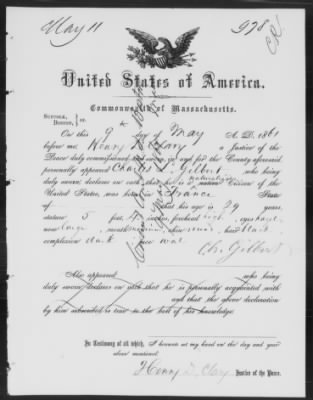 May 11
978
United States of America.
Commonwealth of Massachusetts.
SUFFOLK,
BOSTON, } ss.
On this 9th day of May A. D. 1861
before me, Henry a Justice of the
Peace duly commissioned and in and for the County aforesaid
personally appeared Charles Gilbert who being
duly sworn, declares on oath that he is a Citizen of the
United States, was born in France State
of and that his age is 29 years
stature 5 feet, 4 inches, forehead high eyes
nose large mouth chin hair black
complexion dark face oval
Ch. Gilbert
Also appeared who being
duly sworn declares on oath that he is personally acquainted with
and that the above declaration
by him subscribed is true to the best of his knowledge.
In Testimony of all which, I hereunto set my hand on the day and year
above mentioned.
Henry Justice of the Peace.